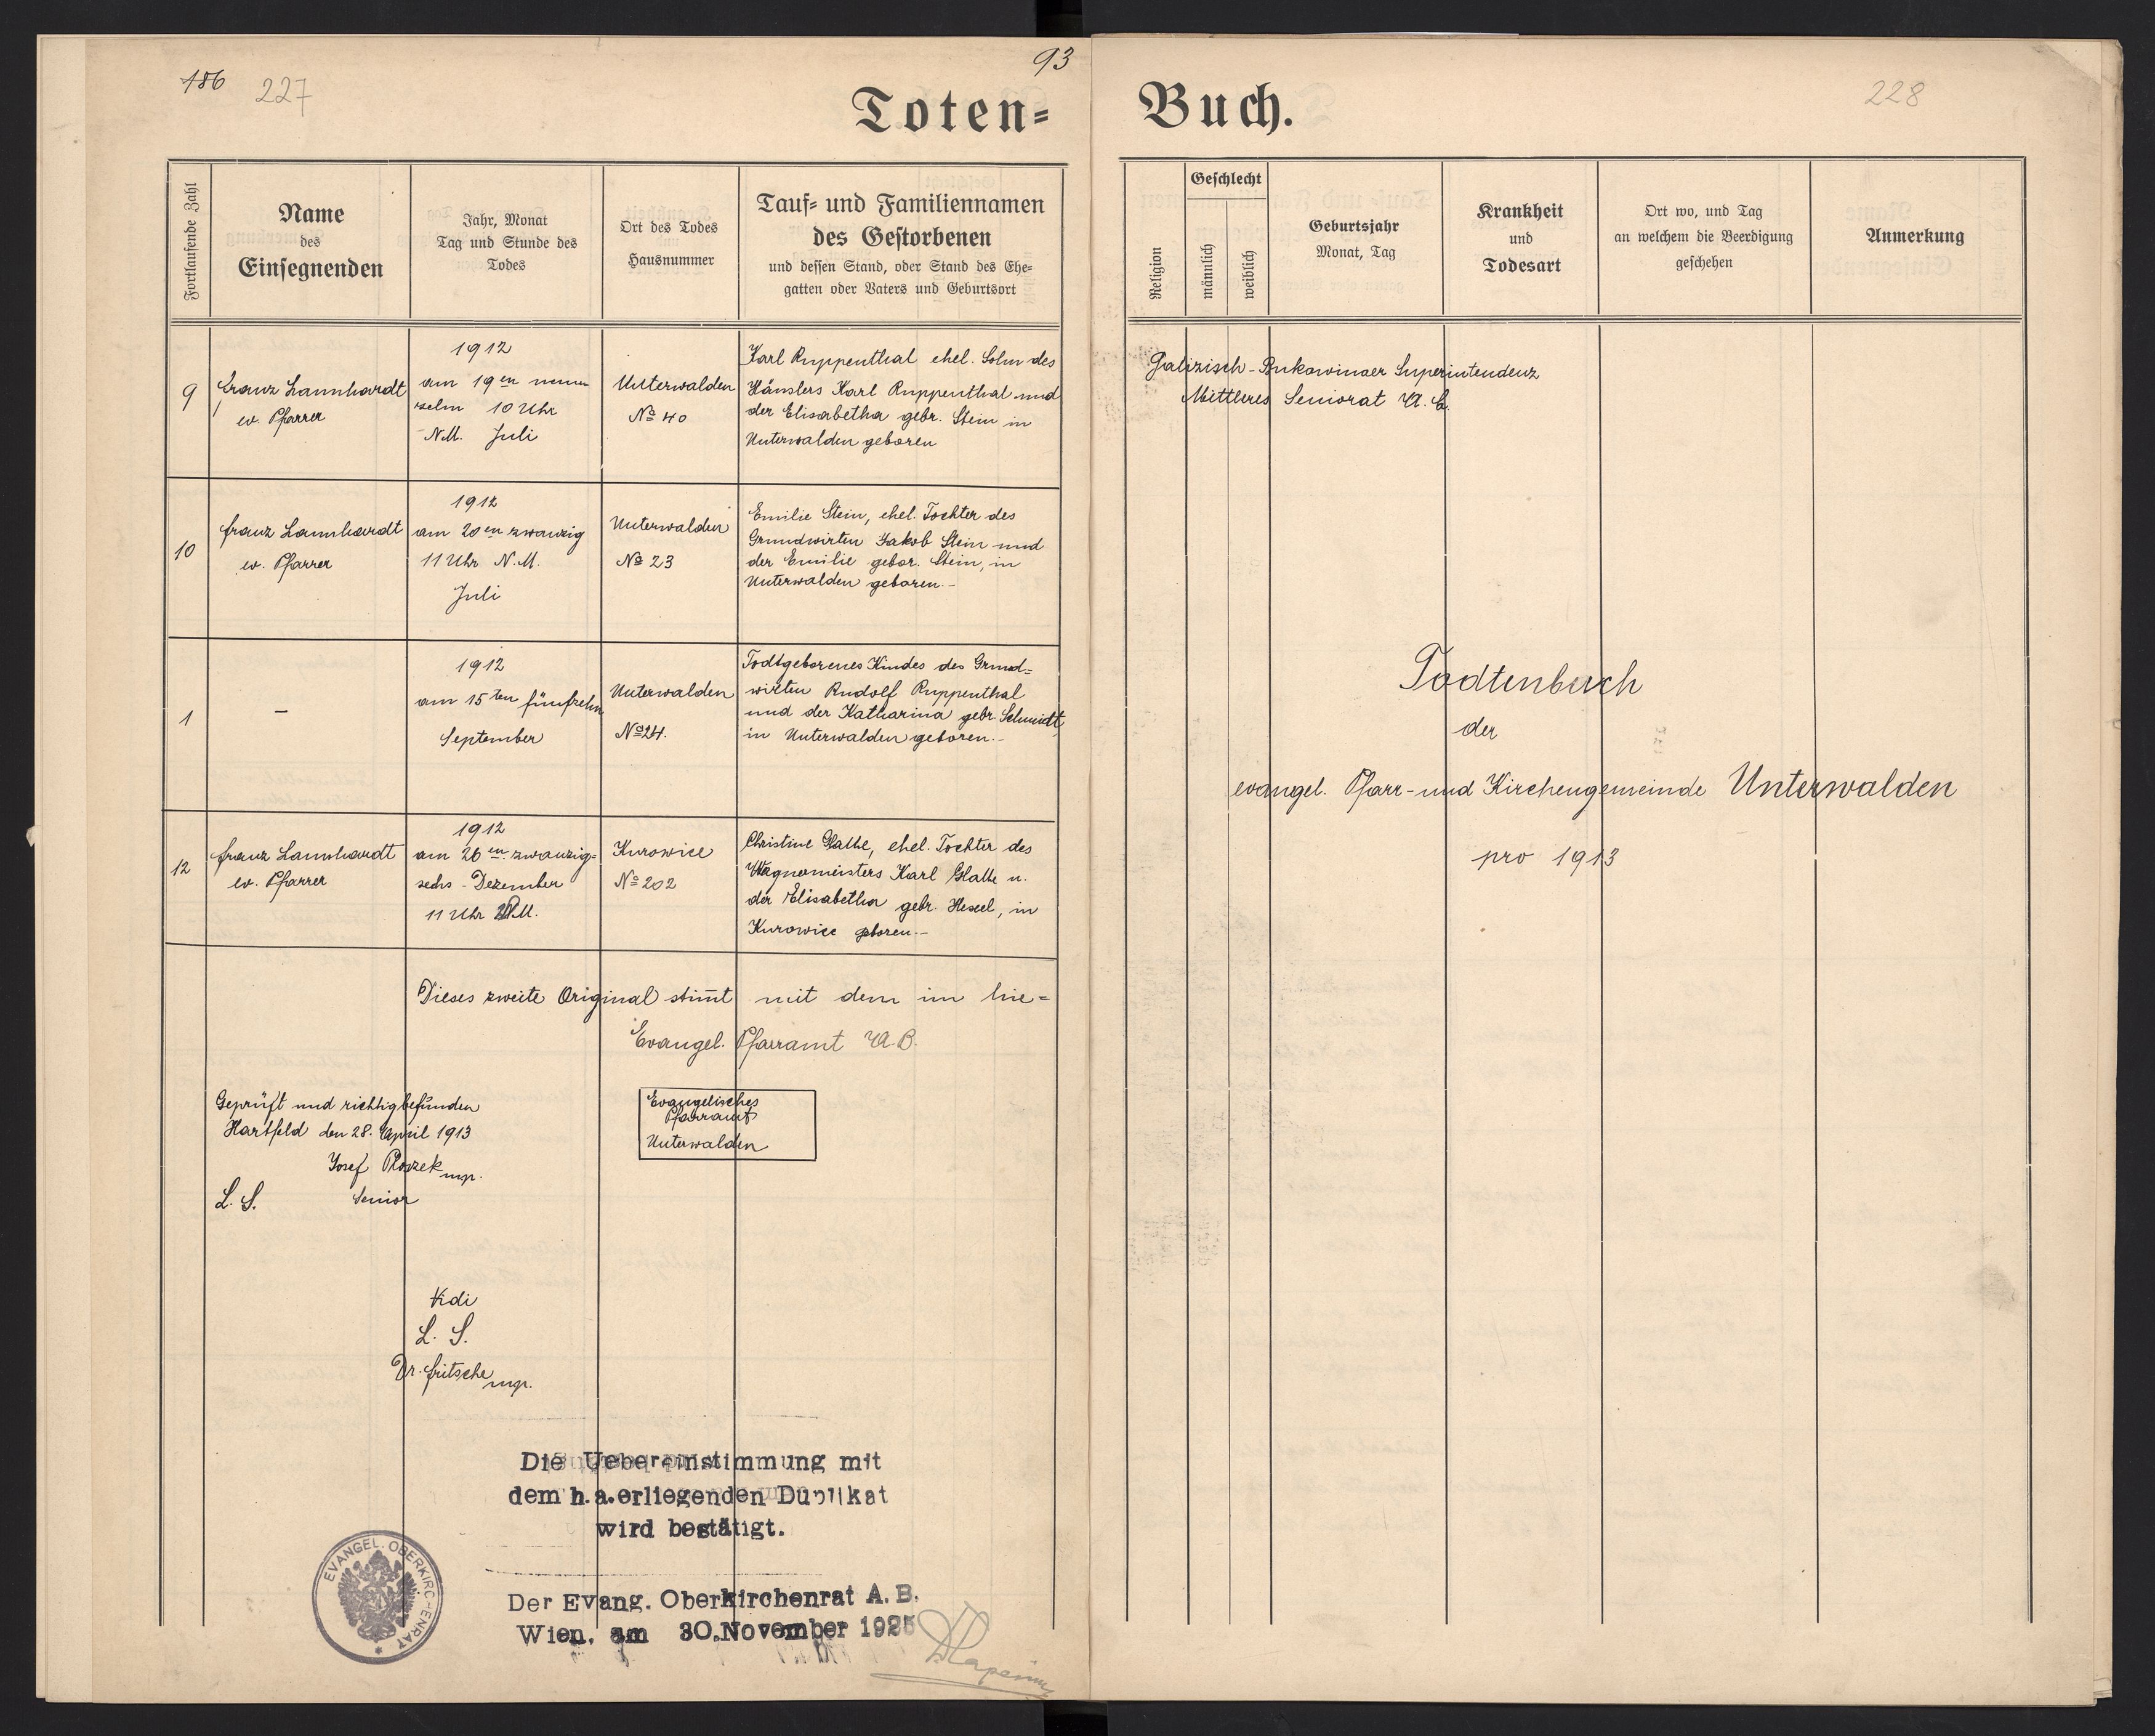 186 227
93
Toten=
Fortlaufende Zahl
Name
des
Einsegnenden
Jahr, Monat
Tag und Stunde des
Todes
Ort des Todes
Hausnummer
Tauf= und Familiennamen
des Gestorbenen
und dessen Stand, oder Stand des Ehe=
gatten oder Vaters und Geburtsort
9
Franz Lannhardt
ev. Pfarrer
1912
am 19en neun
zehn 10 Uhr
N.M. Juli
Unterwalden
No 40
Karl Ruppenthal ehel. Sohn des
Häuslers Karl Ruppenthal und
der Elisabetha gebr. Stein in
Unterwalden geboren
10
Franz Lannhardt
ev. Pfarrer
1912
am 20en zwanzig
11 Uhr N.M.
Juli
Unterwalden
No 23
Emilie Stein, ehel. Tochter des
Grundwirten Jakob Stein und
der Emilie gebor. Stein, in
Unterwalden geboren.-
1
–
1912
am 15ten fünfzehn
September
Unterwalden
No 24.
Todtgeborenes Kindes des Grund=
wirten Rudolf Ruppenthal
und der Katharina gebr. Schmidt,
in Unterwalden geboren.-
12
Franz Lannhardt
ev. Pfarrer
1912
am 26en zwanzig=
sechs - Dezember
11 Uhr M.
Kurowice
No 202
Christine Glathe, ehel. Tochter des
Karl Glathe u.
der Elisabetha gebr. in
Kurowice geboren.-
Dieses zweite Original stimt mit dem im hie=
Evangel. Pfarramt A.B.
Geprüft und richtig befunden
Hartfeld den 28. April 1913
Josef mp.
L. S. Senior
Evangelisches
Pfarramt
Unterwalden
Vidi
L. S.
Dr. Fritsche mp.
Die Uebereinstimmung mit
dem h.a.erliegenden Duplikat
wird bestätigt.
Der Evang. Oberkirchenrat A. B.
Wien, am 30.November 1925
EVANGEL. OBERKIRCHENRAT
Buch.
228
Religion
Geschlecht
männlich
weiblich
Geburtsjahr
Monat, Tag
Krankheit
und
Todesart
Ort wo, und Tag
an welchem die Beerdigung
geschehen
Anmerkung
Galizisch-Bukowinaer Superintendenz
Mittleres Seniorat A. C.
Todtenbuch
der
evangel. Pfarr- und Kirchengemeinde Unterwalden
pro 1913